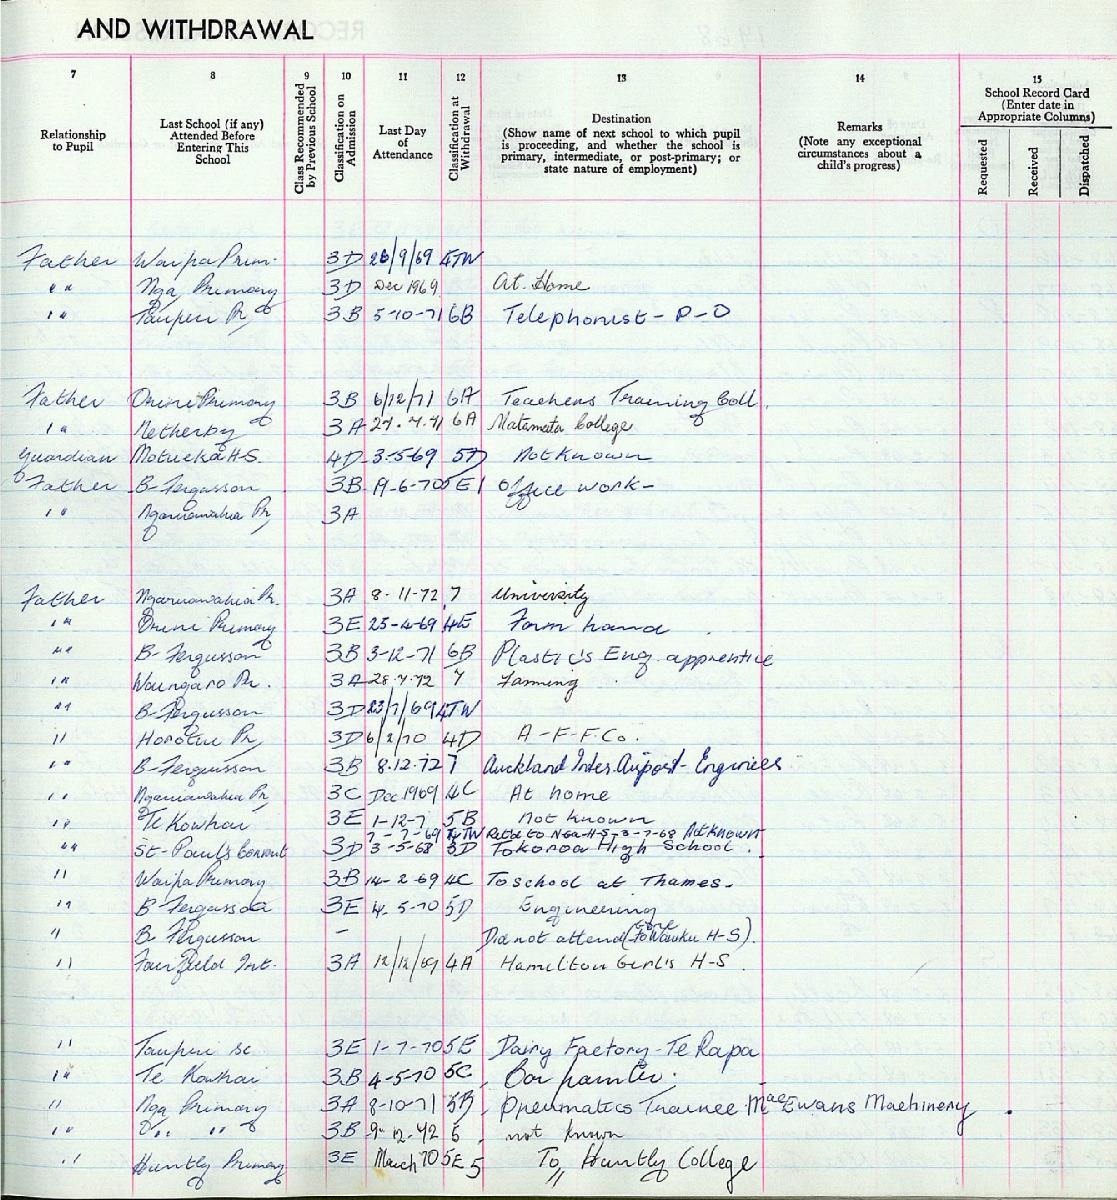 AND WITHDRAWAL
7 8 9 10 11 12 13 14 15
Relationship to Pupil
Last School (if any) Attended Before Entering This School
Class Recommended by Previous School
Classification on Admission
Last Day of Attendance
Classification at Withdrawal
Destination (Show name of next school to which pupil is proceeding, and whether the school is primary, intermediate, or post-primary; or state nature of employment)
Remarks (Note any exceptional circumstances about a child's progress)
School Record Card (Enter date in Appropriate Columns)
Requested Received Dispatched
Father Waipa Prim. 3D 26/9/69 4TW
" " Nga Primary 3D Dec 1969 At Home
" " Taupiri Pr 3B 5-10-71 6B Telephonist - P-O
Father Orini Primary 3B 6/12/71 6A Teachers Training Coll.
" " Netherby 3A 6A Matamata College
Guardian Motueka H-S. 4D 3-5-69 5D Not Known
Father B-Fergusson 3B 19-6-70 5E1 Office work-
" " Ngaruawahia Pr, 3A
Father Ngaruawahia Pr. 3A 8-11-72 7 University
" " Orini Primary 3E 23-4-69 4E Farm hand
" " B-Fergusson 3B 3-12-71 6B Plastics Eng. apprentice
" " Pr. 3A 7 Farming
" " B-Fergusson 3D 4TW
" " Horotiu Pr, 3D 6/2/70 4D A-F-F.Co.
" " B-Fergusson 3B 8.12.72 7 Auckland Inter. Airport-Enginees
" " Ngaruawahia Pr, 3C Dec 1969 4C At home
" " Te Kowhai 3E 1-12-7 5B Not known
7-7-69 4TW Retd to Nga-H-S-3-7-68 Not Known
" " St-Paul's Convent 3D 3-5-68 3D Tokoroa High School.
" " Waipa Primary 3B 14-2-69 4C To school at Thames-
" " B-Fergusson 3E 14.5-70 5D Engineering
" " B-Fergusson - Did not attend (gone to Waiuku H-S).
" " Fairfield Int. 3A 12/12/69 4A Hamilton Girl's H-S
" " Taupiri Sc 3E 1-7-70 5E Dairy Factory-Te Rapa
" " Te Kowhai 3B 4-5-70 5C Car painter.
" " Nga Primary 3A 8-10-71 5B Pneumatics Trainee MacEwans Machinery
" " " " " " 3B 5 not known
" " Huntly Primary 3E March 70 5E5 To Huntly College